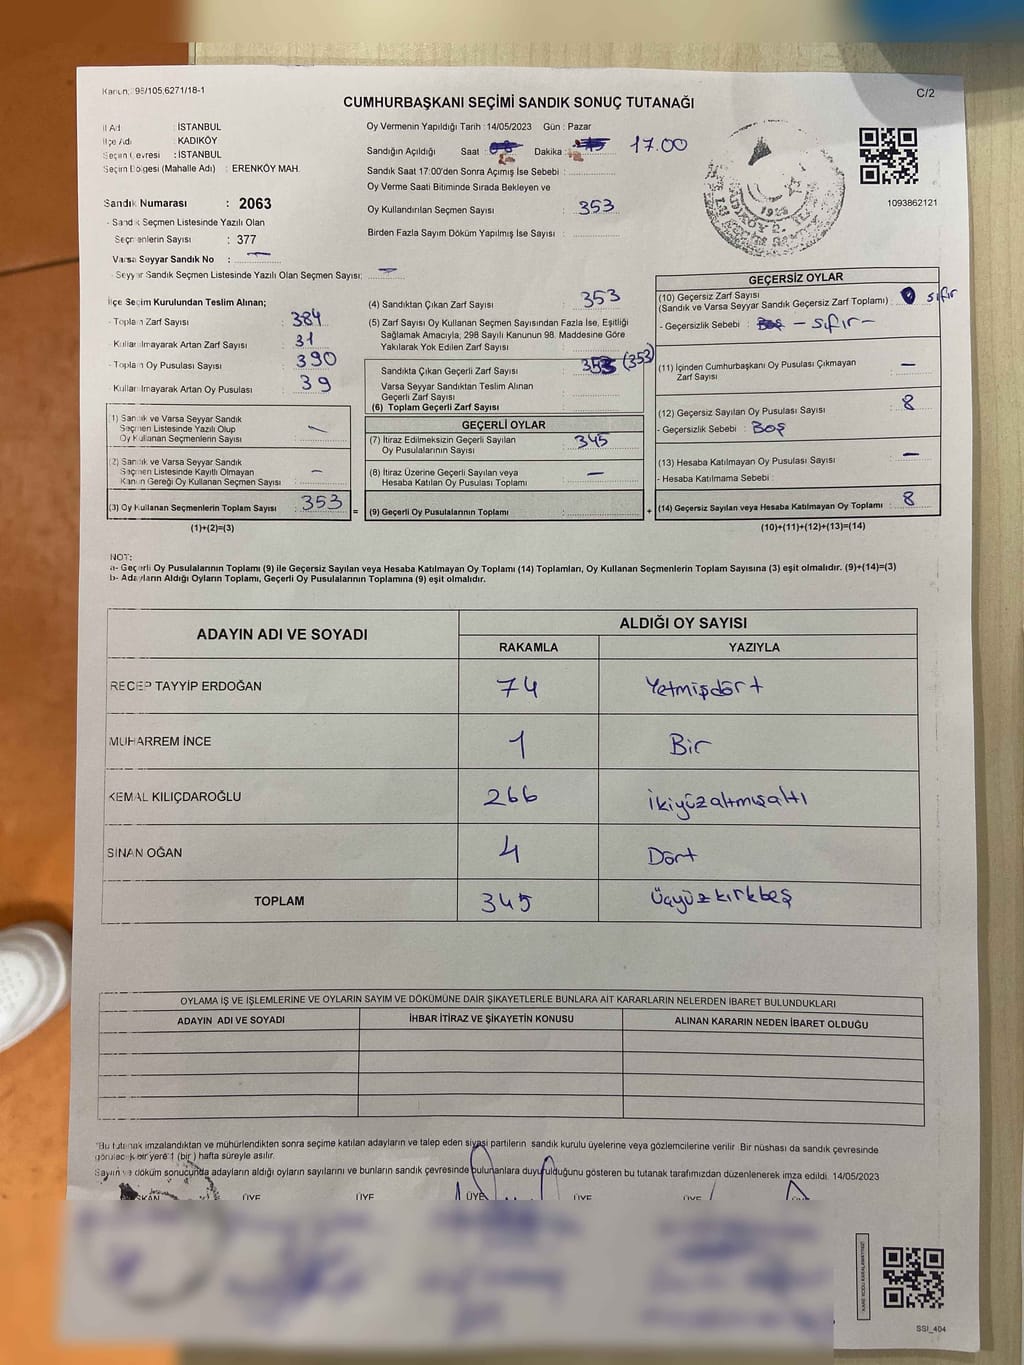 Kanun: 98/105,6271/18-1
C/2
CUMHURBAŞKANI SEÇİMİ SANDIK SONUÇ TUTANAĞI
İl Adı : İSTANBUL
İlçe Adı : KADIKÖY
Seçim Çevresi : İSTANBUL
Seçim Bölgesi (Mahalle Adı) : ERENKÖY MAH.
Sandık Numarası : 2063
- Sandık Seçmen Listesinde Yazılı Olan
Seçmenlerin Sayısı : 377
Varsa Seyyar Sandık No : —
- Seyyar Sandık Seçmen Listesinde Yazılı Olan Seçmen Sayısı: —
Oy Vermenin Yapıldığı Tarih : 14/05/2023 Gün : Pazar
Sandığın Açıldığı Saat : Dakika : 17.00
Sandık Saat 17:00'den Sonra Açımış İse Sebebi :
Oy Verme Saati Bitiminde Sırada Bekleyen ve
Oy Kullandırılan Seçmen Sayısı : 353
Birden Fazla Sayım Döküm Yapılmış İse Sayısı :
1093862121
İlçe Seçim Kurulundan Teslim Alınan;
- Toplam Zarf Sayısı : 384
- Kullanılmayarak Artan Zarf Sayısı : 31
- Toplam Oy Pusulası Sayısı : 390
- Kullanılmayarak Artan Oy Pusulası : 39
(1) Sandık ve Varsa Seyyar Sandık
Seçmen Listesinde Yazılı Olup
Oy Kullanan Seçmenlerin Sayısı : —
(2) Sandık ve Varsa Seyyar Sandık
Seçmen Listesinde Kayıtlı Olmayan
Kanun Gereği Oy Kullanan Seçmen Sayısı : —
(3) Oy Kullanan Seçmenlerin Toplam Sayısı : 353
(1)+(2)=(3)
(4) Sandıktan Çıkan Zarf Sayısı : 353
(5) Zarf Sayısı Oy Kullanan Seçmen Sayısından Fazla İse, Eşitliği
Sağlamak Amacıyla, 298 Sayılı Kanunun 98. Maddesine Göre
Yakılarak Yok Edilen Zarf Sayısı :
Sandıkta Çıkan Geçerli Zarf Sayısı : 353 (353)
Varsa Seyyar Sandıktan Teslim Alınan
Geçerli Zarf Sayısı :
(6) Toplam Geçerli Zarf Sayısı :
GEÇERLİ OYLAR
(7) İtiraz Edilmeksizin Geçerli Sayılan
Oy Pusulalarının Sayısı : 345
(8) İtiraz Üzerine Geçerli Sayılan veya
Hesaba Katılan Oy Pusulası Toplamı : —
= (9) Geçerli Oy Pusulalarının Toplamı :
GEÇERSİZ OYLAR
(10) Geçersiz Zarf Sayısı
(Sandık ve Varsa Seyyar Sandık Geçersiz Zarf Toplamı) : sıfır
- Geçersizlik Sebebi : Boş - sıfır -
(11) İçinden Cumhurbaşkanı Oy Pusulası Çıkmayan
Zarf Sayısı : —
(12) Geçersiz Sayılan Oy Pusulası Sayısı : 8
- Geçersizlik Sebebi : Boş
(13) Hesaba Katılmayan Oy Pusulası Sayısı : —
- Hesaba Katılmama Sebebi :
+ (14) Geçersiz Sayılan veya Hesaba Katılmayan Oy Toplamı : 8
(10)+(11)+(12)+(13)=(14)
NOT:
a- Geçerli Oy Pusulalarının Toplamı (9) ile Geçersiz Sayılan veya Hesaba Katılmayan Oy Toplamı (14) Toplamları, Oy Kullanan Seçmenlerin Toplam Sayısına (3) eşit olmalıdır. (9)+(14)=(3)
b- Adayların Aldığı Oyların Toplamı, Geçerli Oy Pusulalarının Toplamına (9) eşit olmalıdır.
ADAYIN ADI VE SOYADI
ALDIĞI OY SAYISI
RAKAMLA YAZIYLA
RECEP TAYYİP ERDOĞAN 74 Yetmişdört
MUHARREM İNCE 1 Bir
KEMAL KILIÇDAROĞLU 266 İkiyüzaltmışaltı
SİNAN OĞAN 4 Dört
TOPLAM 345 Üçyüzkırkbeş
OYLAMA İŞ VE İŞLEMLERİNE VE OYLARIN SAYIM VE DÖKÜMÜNE DAİR ŞİKAYETLERLE BUNLARA AİT KARARLARIN NELERDEN İBARET BULUNDUKLARI
ADAYIN ADI VE SOYADI İHBAR İTİRAZ VE ŞİKAYETİN KONUSU ALINAN KARARIN NEDEN İBARET OLDUĞU
"Bu tutanak imzalandıktan ve mühürlendikten sonra seçime katılan adayların ve talep eden siyasi partilerin sandık kurulu üyelerine veya gözlemcilerine verilir. Bir nüshası da sandık çevresinde
görülecek bir yere 1 (bir) hafta süreyle asılır.
Sayım ve döküm sonucunda adayların aldığı oyların sayılarını ve bunların sandık çevresinde bulunanlara duyurulduğunu gösteren bu tutanak tarafımızdan düzenlenerek imza edildi. 14/05/2023
ÜYE ÜYE ÜYE ÜYE ÜYE
SSI_404